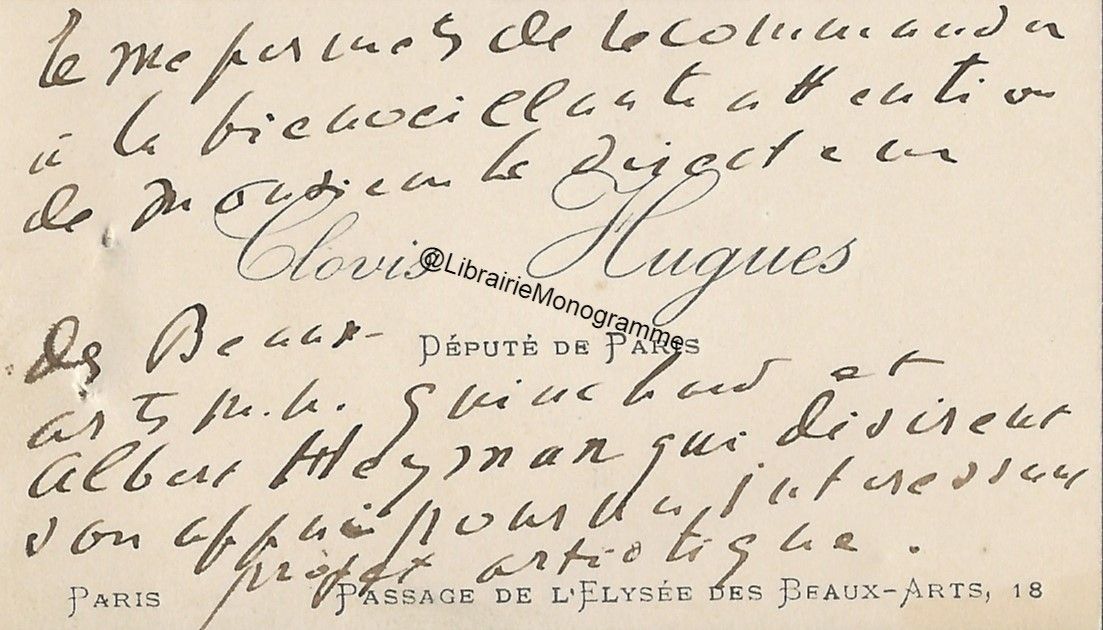 Je me permets de recommander
à la bienveillante attention
de Monsieur le Directeur
Clovis Hugues
@LibrairieMonogramme
Député de Paris
des Beaux-
arts m.m. Guinchard et
Albert Heyman qui désirent
son appui pour un intéressant
projet artistique.
Paris Passage de l'Elysée des Beaux-Arts, 18